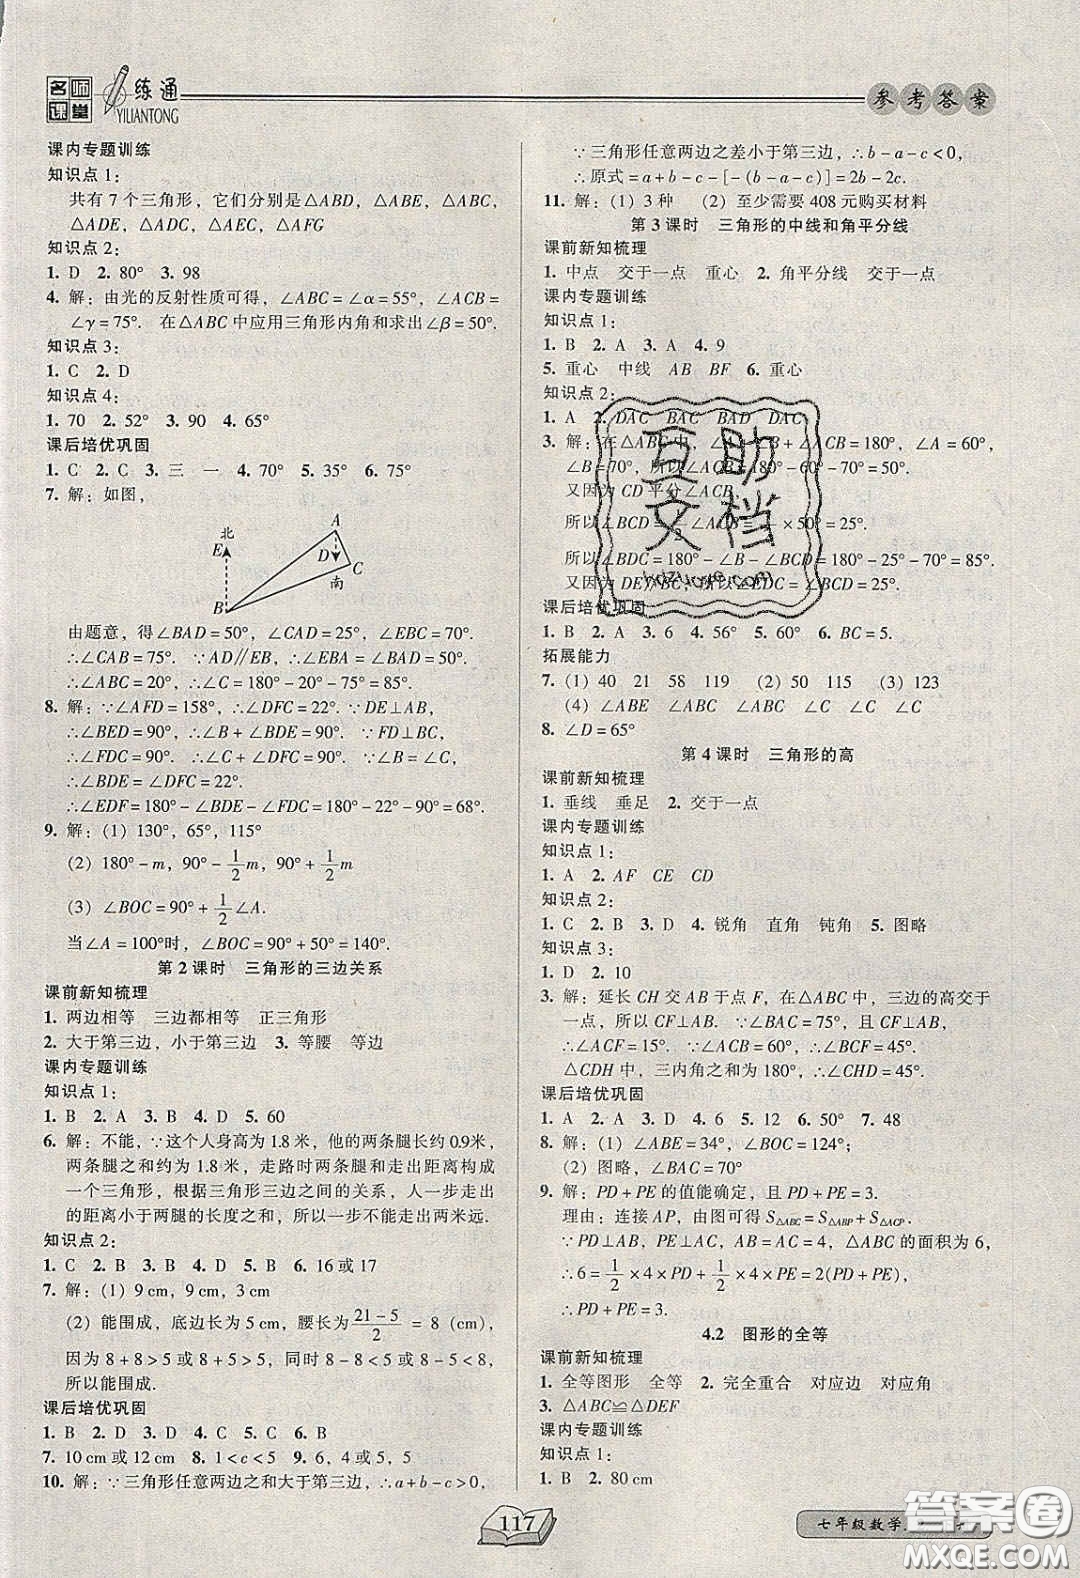 名师课堂 一练通
YILIANTONG
参考答案
课内专题训练
知识点1：
共有7个三角形，它们分别是△ABD，△ABE，△ABC，
△ADE，△ADC，△AEC，△AFG
知识点2：
1. D 2. 80° 3. 98
4. 解：由光的反射性质可得，∠ABC=∠α=55°，∠ACB=
∠γ=75°. 在△ABC中应用三角形内角和求出∠β=50°.
知识点3：
1. C 2. D
知识点4：
1. 70 2. 52° 3. 90 4. 65°
课后培优巩固
1. C 2. C 3. 三 一 4. 70° 5. 35° 6. 75°
7. 解：如图，
北 A
E D C
南
B
由题意，得∠BAD=50°，∠CAD=25°，∠EBC=70°.
∴∠CAB=75°. ∵AD∥EB，∴∠EBA=∠BAD=50°.
∴∠ABC=20°，∴∠C=180°-20°-75°=85°.
8. 解：∵∠AFD=158°，∴∠DFC=22°. ∵DE⊥AB，
∴∠BED=90°，∴∠B+∠BDE=90°. ∵FD⊥BC，
∴∠FDC=90°. ∴∠C+∠DFC=90°. ∵∠B=∠C，
∴∠BDE=∠DFC=22°.
∴∠EDF=180°-∠BDE-∠FDC=180°-22°-90°=68°.
9. 解：(1) 130°，65°，115°
(2) 180°-m，90°-1/2m，90°+1/2m
(3) ∠BOC=90°+1/2∠A.
当∠A=100°时，∠BOC=90°+50°=140°.
第2课时 三角形的三边关系
课前新知梳理
1. 两边相等 三边都相等 正三角形
2. 大于第三边，小于第三边 3. 等腰 等边
课内专题训练
知识点1：
1. B 2. A 3. B 4. D 5. 60
6. 解：不能，∵这个人身高为1.8米，他的两条腿长约0.9米，
两条腿之和约为1.8米，走路时两条腿和走出距离构成
一个三角形，根据三角形三边之间的关系，人一步走出
的距离小于两腿的长度之和，所以一步不能走两米远.
知识点2：
1. C 2. B 3. C 4. B 5. B 6. 16或17
7. 解：(1) 9 cm，9 cm，3 cm
(2) 能围成，底边长为5 cm，腰长为(21-5)/2=8 (cm)，
因为8+8>5或8+5>8，同时8-8<5或8-5<8，
所以能围成.
课后培优巩固
1. B 2. D 3. D 4. C 5. C 6. B
7. 10 cm或12 cm 8. 1<c<5 9. 6，4或5，5
10. 解：∵三角形任意两边之和大于第三边，∴a+b-c>0，
∵三角形任意两边之差小于第三边，∴b-a-c<0，
∴原式=a+b-c-[-(b-a-c)]=2b-2c.
11. 解：(1) 3种 (2) 至少需要408元购买材料
第3课时 三角形的中线和角平分线
课前新知梳理
1. 中点 交于一点 重心 2. 角平分线 交于一点
课内专题训练
知识点1：
1. B 2. A 3. A 4. 9
5. 重心 中线 AB BF 6. 重心
知识点2：
1. A 2. DAC BAC BAD DAC
3. 解：在△ABC中，∠A+∠B+∠ACB=180°，∠A=60°，
∠B=70°，所以∠ACB=180°-60°-70°=50°.
又因为CD平分∠ACB，
所以∠BCD=1/2∠ACB=1/2×50°=25°.
所以∠BDC=180°-∠B-∠BCD=180°-25°-70°=85°.
又因为DE∥BC，所以∠EDC=∠BCD=25°.
课后培优巩固
1. B 2. A 3. 6 4. 56° 5. 60° 6. BC=5.
拓展能力
7. (1) 40 21 58 119 (2) 50 115 (3) 123
(4) ∠ABE ∠ABC ∠ABC ∠C ∠C ∠C
8. ∠D=65°
第4课时 三角形的高
课前新知梳理
1. 垂线 垂足 2. 交于一点
课内专题训练
知识点1：
1. A 2. AF CE CD
知识点2：
1. C 2. B 3. D 4. 锐角 直角 钝角 5. 图略
知识点3：
1. D 2. 10
3. 解：延长CH交AB于点F，在△ABC中，三边的高交于
一点，所以CF⊥AB. ∵∠BAC=75°，且CF⊥AB，
∴∠ACF=15°. ∵∠ACB=60°，∴∠BCF=45°.
△CDH中，三内角之和为180°，∴∠CHD=45°.
课后培优巩固
1. A 2. A 3. D 4. 6 5. 12 6. 50° 7. 48
8. 解：(1) ∠ABE=34°，∠BOC=124°；
(2) 图略，∠BAC=70°
9. 解：PD+PE的值能确定，且PD+PE=3.
理由：连接AP，由图可得S△ABC=S△ABP+S△ACP.
∵PD⊥AB，PE⊥AC，AB=AC=4，△ABC的面积为6，
∴6=1/2×4×PD+1/2×4×PE=2(PD+PE)，
∴PD+PE=3.
4.2 图形的全等
课前新知梳理
1. 全等图形 全等 2. 完全重合 对应边 对应角
3. △ABC≌△DEF
课内专题训练
知识点1：
1. B 2. 80 cm
互助
文档
117
七年级数学
答案圈
MXQE.COM